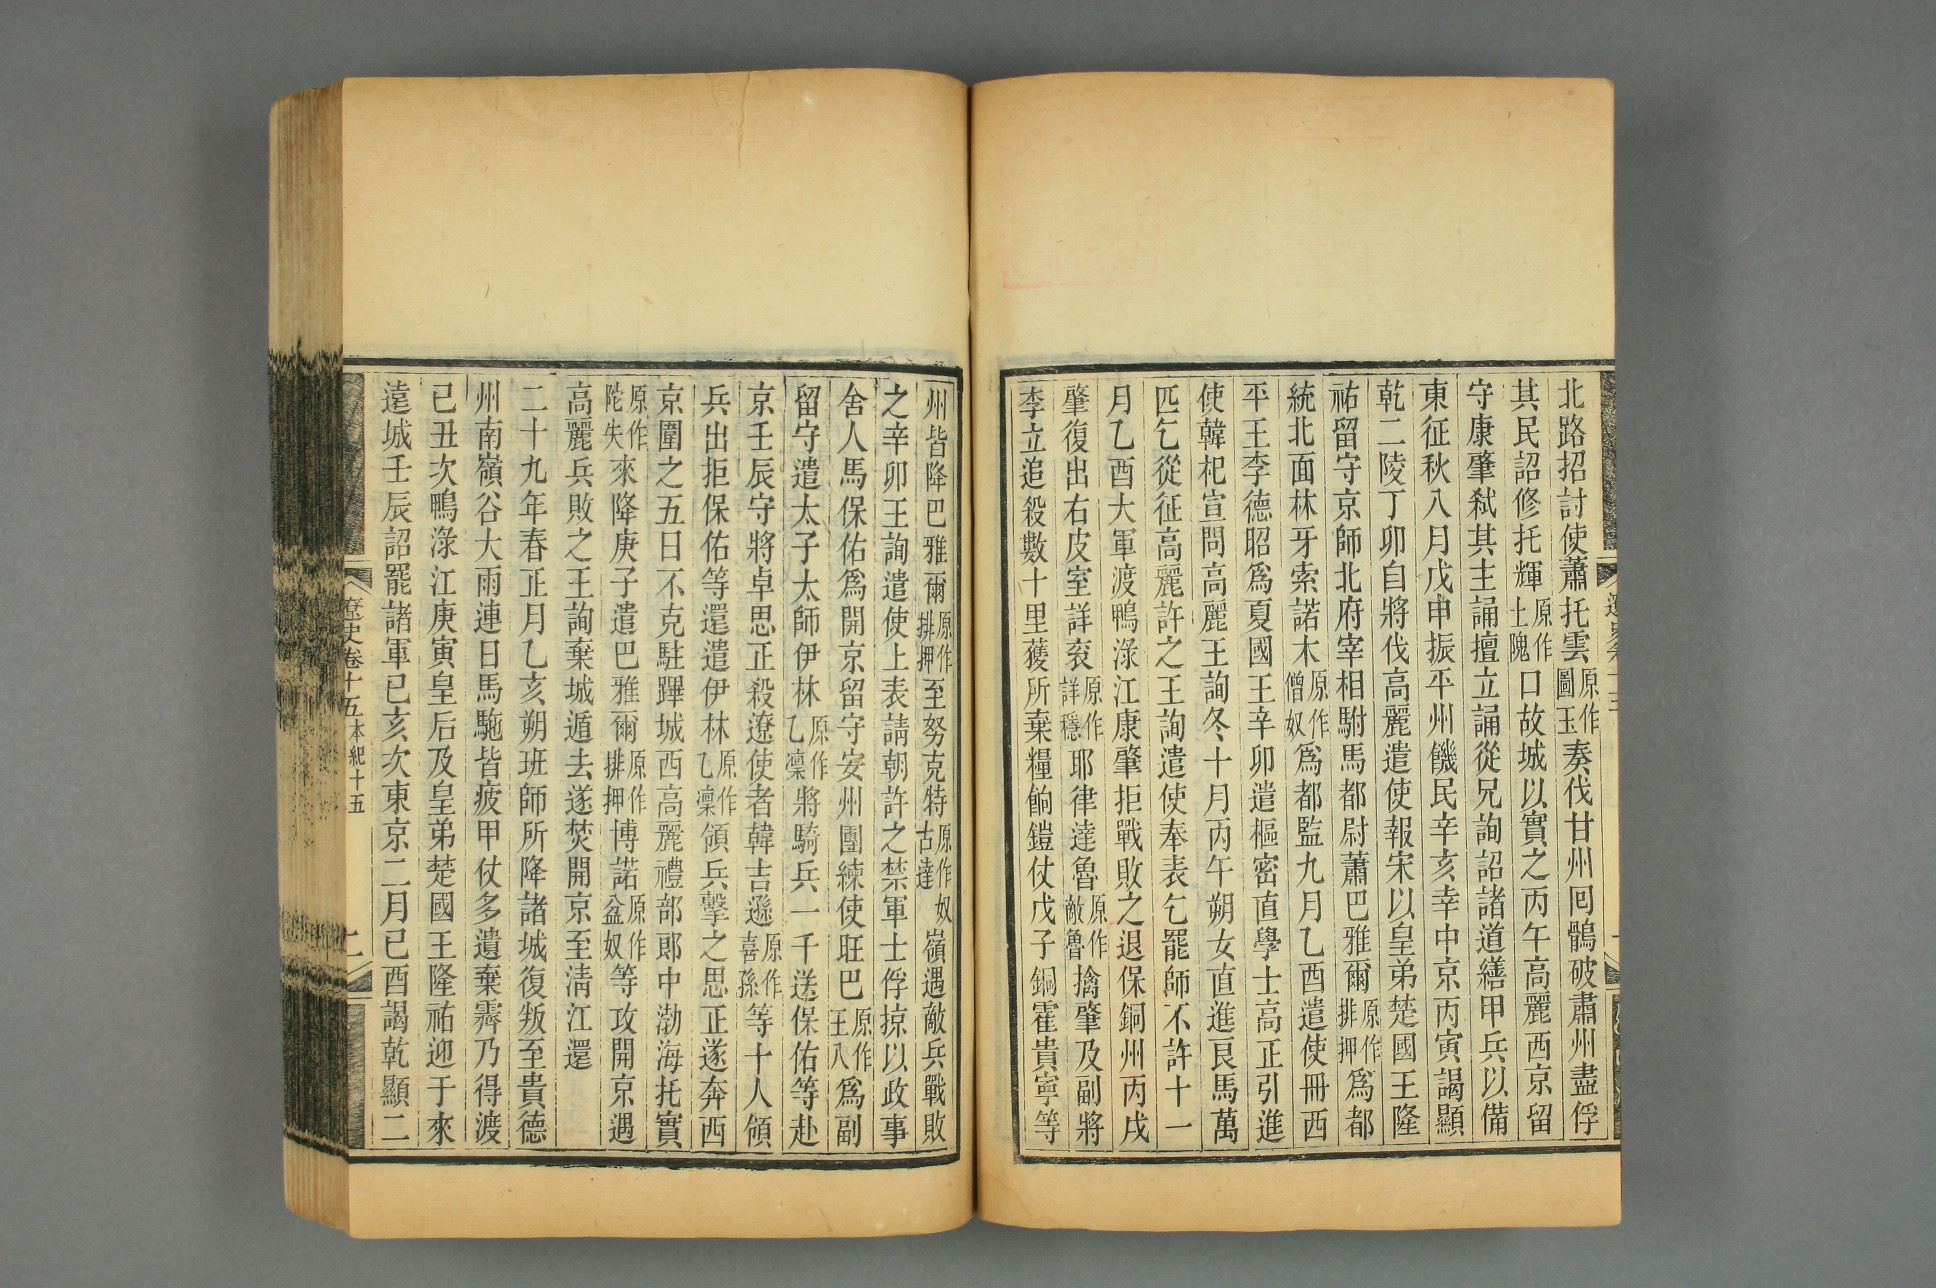 北路招討使蕭托雲原作圖玉奏伐甘州回鶻破肅州盡俘
其民詔修托輝原作土隗口故城以實之丙午高麗西京留
守康肇弑其主誦擅立誦從兄詢詔諸道繕甲兵以備
東征秋八月戊申振平州饑民辛亥幸中京丙寅謁顯
乾二陵丁卯自將伐高麗遣使報宋以皇弟楚國王隆
祐留守京師北府宰相駙馬都尉蕭巴雅爾原作排押為都
統北面林牙索諾木原作僧奴為都監九月乙酉遣使冊西
平王李德昭為夏國王辛卯遣樞密直學士高正引進
使韓杞宣問高麗王詢冬十月丙午朔女直進良馬萬
匹乞從征高麗許之王詢遣使奉表乞罷師不許十一
月乙酉大軍渡鴨淥江康肇拒戰敗之退保銅州丙戌
肇復出右皮室詳袞原作詳穩耶律達魯原作敵魯擒肇及副將
李立追殺數十里獲所棄糧餉鎧仗戊子銅霍貴寧等
州皆降巴雅爾原作排押至努克特原作奴古達嶺遇敵兵戰敗
之辛卯王詢遣使上表請朝許之禁軍士俘掠以政事
舍人馬保佑為開京留守安州團練使旺巴原作王八為副
留守遣太子太師伊林原作乙凜將騎兵一千送保佑等赴
京壬辰守將卓思正殺遼使者韓吉遜原作喜孫等十人領
兵出拒保佑等還遣伊林原作乙凜領兵擊之思正遂奔西
京圍之五日不克駐蹕城西高麗禮部郎中渤海托實
原作陀失來降庚子遣巴雅爾原作排押博諾原作盆奴等攻開京遇
高麗兵敗之王詢棄城遁去遂焚開京至清江還
二十九年春正月乙亥朔班師所降諸城復叛至貴德
州南嶺谷大雨連日馬駞皆疲甲仗多遺棄霽乃得渡
己丑次鴨淥江庚寅皇后及皇弟楚國王隆祐迎于來
遠城壬辰詔罷諸軍己亥次東京二月己酉謁乾顯二
遼史卷十五 本紀十五 二